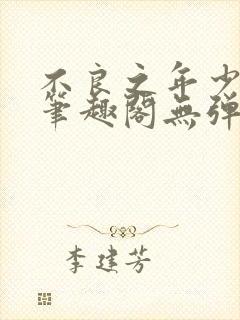 不良之年少
筆趣閣無弹
李建芳